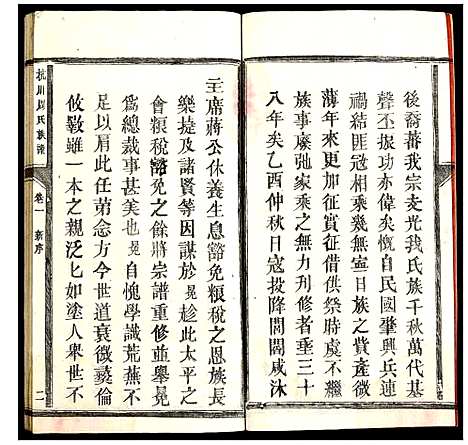 後裔蕃我宗支光我氏族千秋萬代基
聲丕振功亦偉矣慨自民國肇興兵連
禍結匪冠相乘幾無寧日族之產業微
薄年來更加征實征借供祭時虞不繼
族事廢弛家乘之無力刋修者垂三十
八年矣乙酉仲秋日寇投降閭閻咸沐
主席蔣公休養生息豁免粮稅之恩族長
樂揵及諸賢等因謀於晃趁此太平之
會粮稅豁免之餘將宗譜重修並舉晃
爲總裁事甚美也晃自愧學識荒蕪不
足以肩此任苐念方今世道衰微彝倫
攸斁雖一本之親泛七如塗人舉世不
杭川周氏族譜
卷一
新序
二